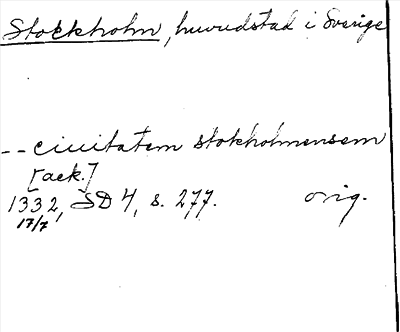 Stockholm, huvudstad i Sverige
-- ciuitatem stokholmensem
[ack.]
1332, SD 4, s. 277. orig.
17/7